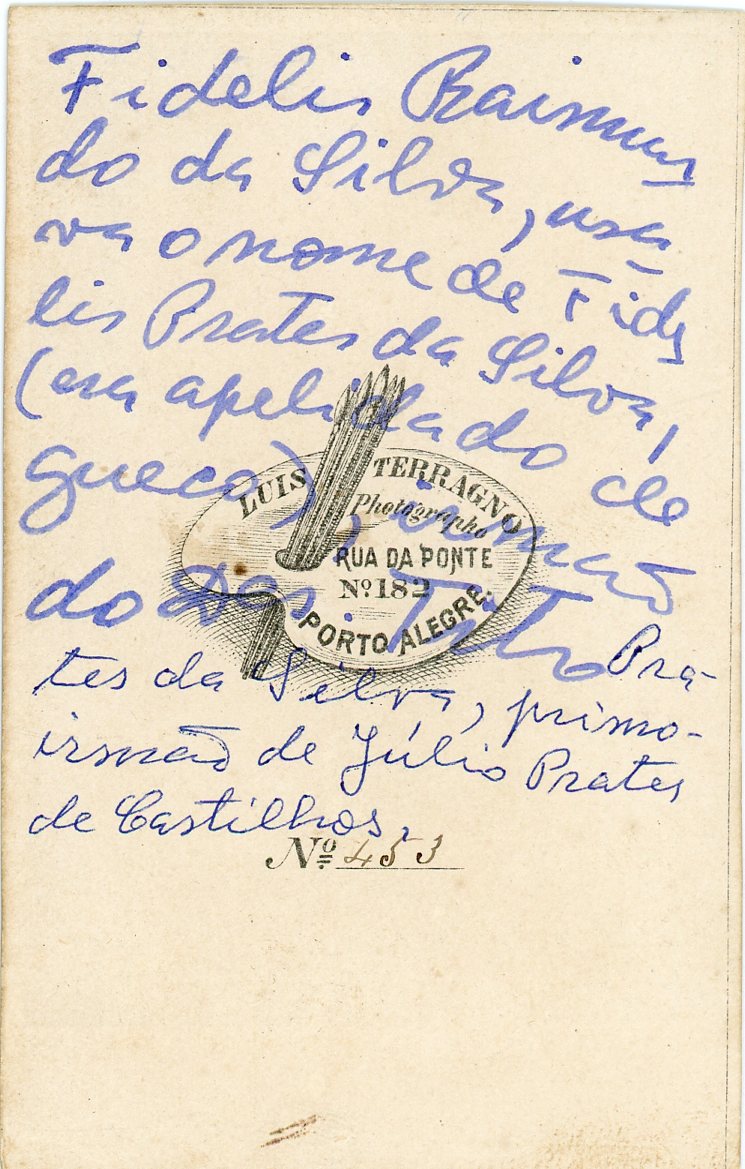 Fidelis Raimun
do da Silva, usa
va o nome de Fide
lis Prates da Silva,
(era apelidado de
Gueca), irmão
do Des. Tito Pra-
tes da Silva, primo-
irmão de Júlio Prates
de Castilhos.
LUIS TERRAGNO
Photographo
RUA DA PONTE
Nº 182
PORTO ALEGRE.
Nº 453